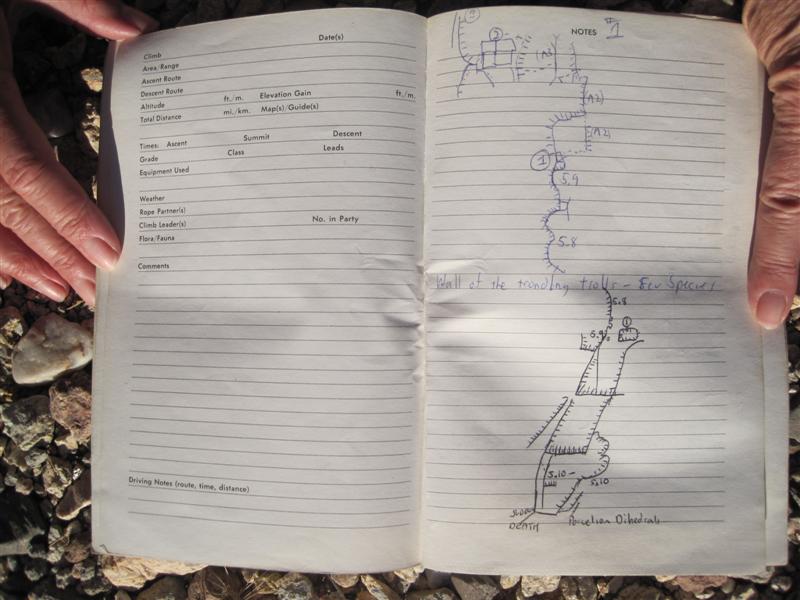 Date(s)
Climb
Area/Range
Ascent Route
Descent Route
Altitude ft./m. Elevation Gain ft./m.
Total Distance mi./km. Map(s)/Guide(s)
Times: Ascent Summit Descent
Grade Class Leads
Equipment Used
Weather
Rope Partner(s)
Climb Leader(s) No. in Party
Flora/Fauna
Comments
Driving Notes (route, time, distance)
NOTES #1
2
(A2)
(A2)
1
5.9
5.8
Wall of the trundling trolls -
5.8
5.9
1
5.10 -
5.10
DEATH
Porcelain Dihedrals